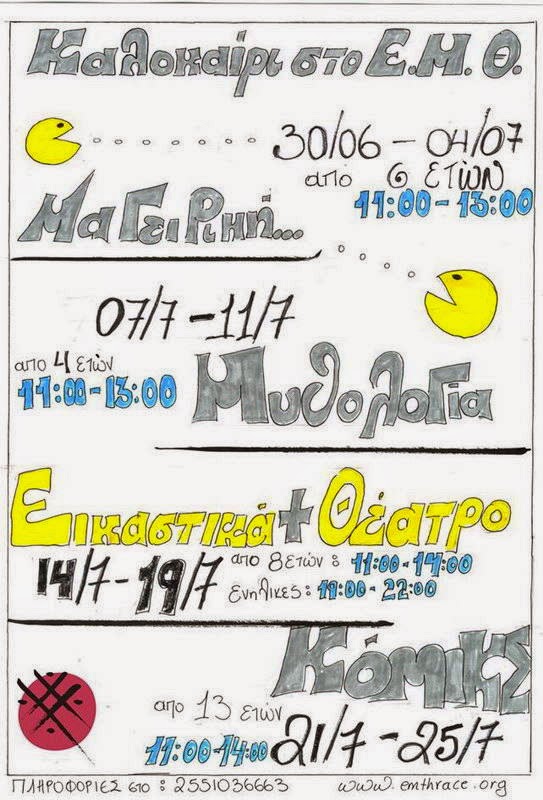 Καλοκαίρι στο Ε.Μ.Θ.
30/06 - 04/07
από 6 ετών
11:00 - 13:00
Μαγειρική...
07/7 - 11/7
από 4 ετών
11:00 - 13:00
Μυθολογία
Εικαστικά + Θέατρο
14/7 - 19/7
από 8 ετών: 11:00 - 14:00
Ενήλικες: 19:00 - 22:00
Κόμικς
από 13 ετών
11:00 - 14:00
21/7 - 25/7
ΠΛΗΡΟΦΟΡΙΕΣ στο: 2551036663 www.emthrace.org